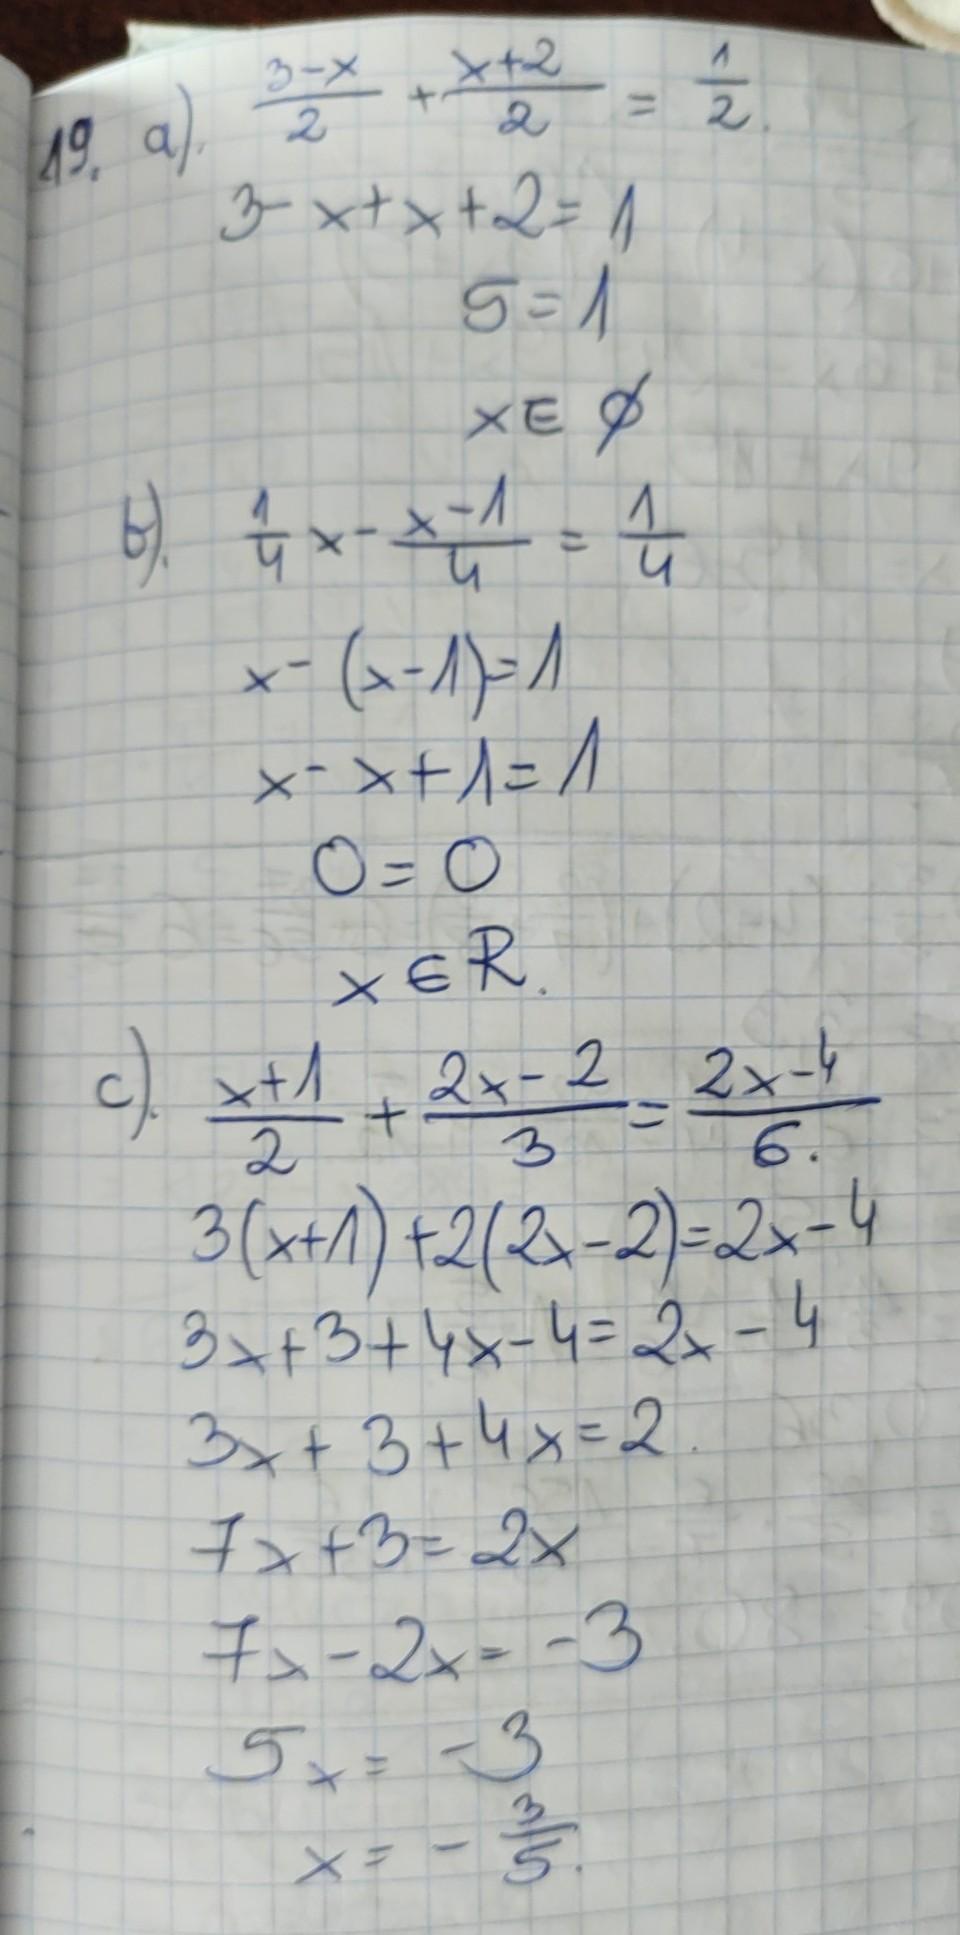 19. a). \frac{3-x}{2} + \frac{x+2}{2} = \frac{1}{2}.
3-x+x+2=1
5=1
x∈ ∅
b). \frac{1}{4}x - \frac{x-1}{4} = \frac{1}{4}
x-(x-1)=1
x-x+1=1
0=0
x∈R.
c). \frac{x+1}{2} + \frac{2x-2}{3} = \frac{2x-4}{6}.
3(x+1)+2(2x-2)=2x-4
3x+3+4x-4=2x-4
3x+3+4x=2.
7x+3=2x
7x-2x=-3
5x=-3
x=-\frac{3}{5}.